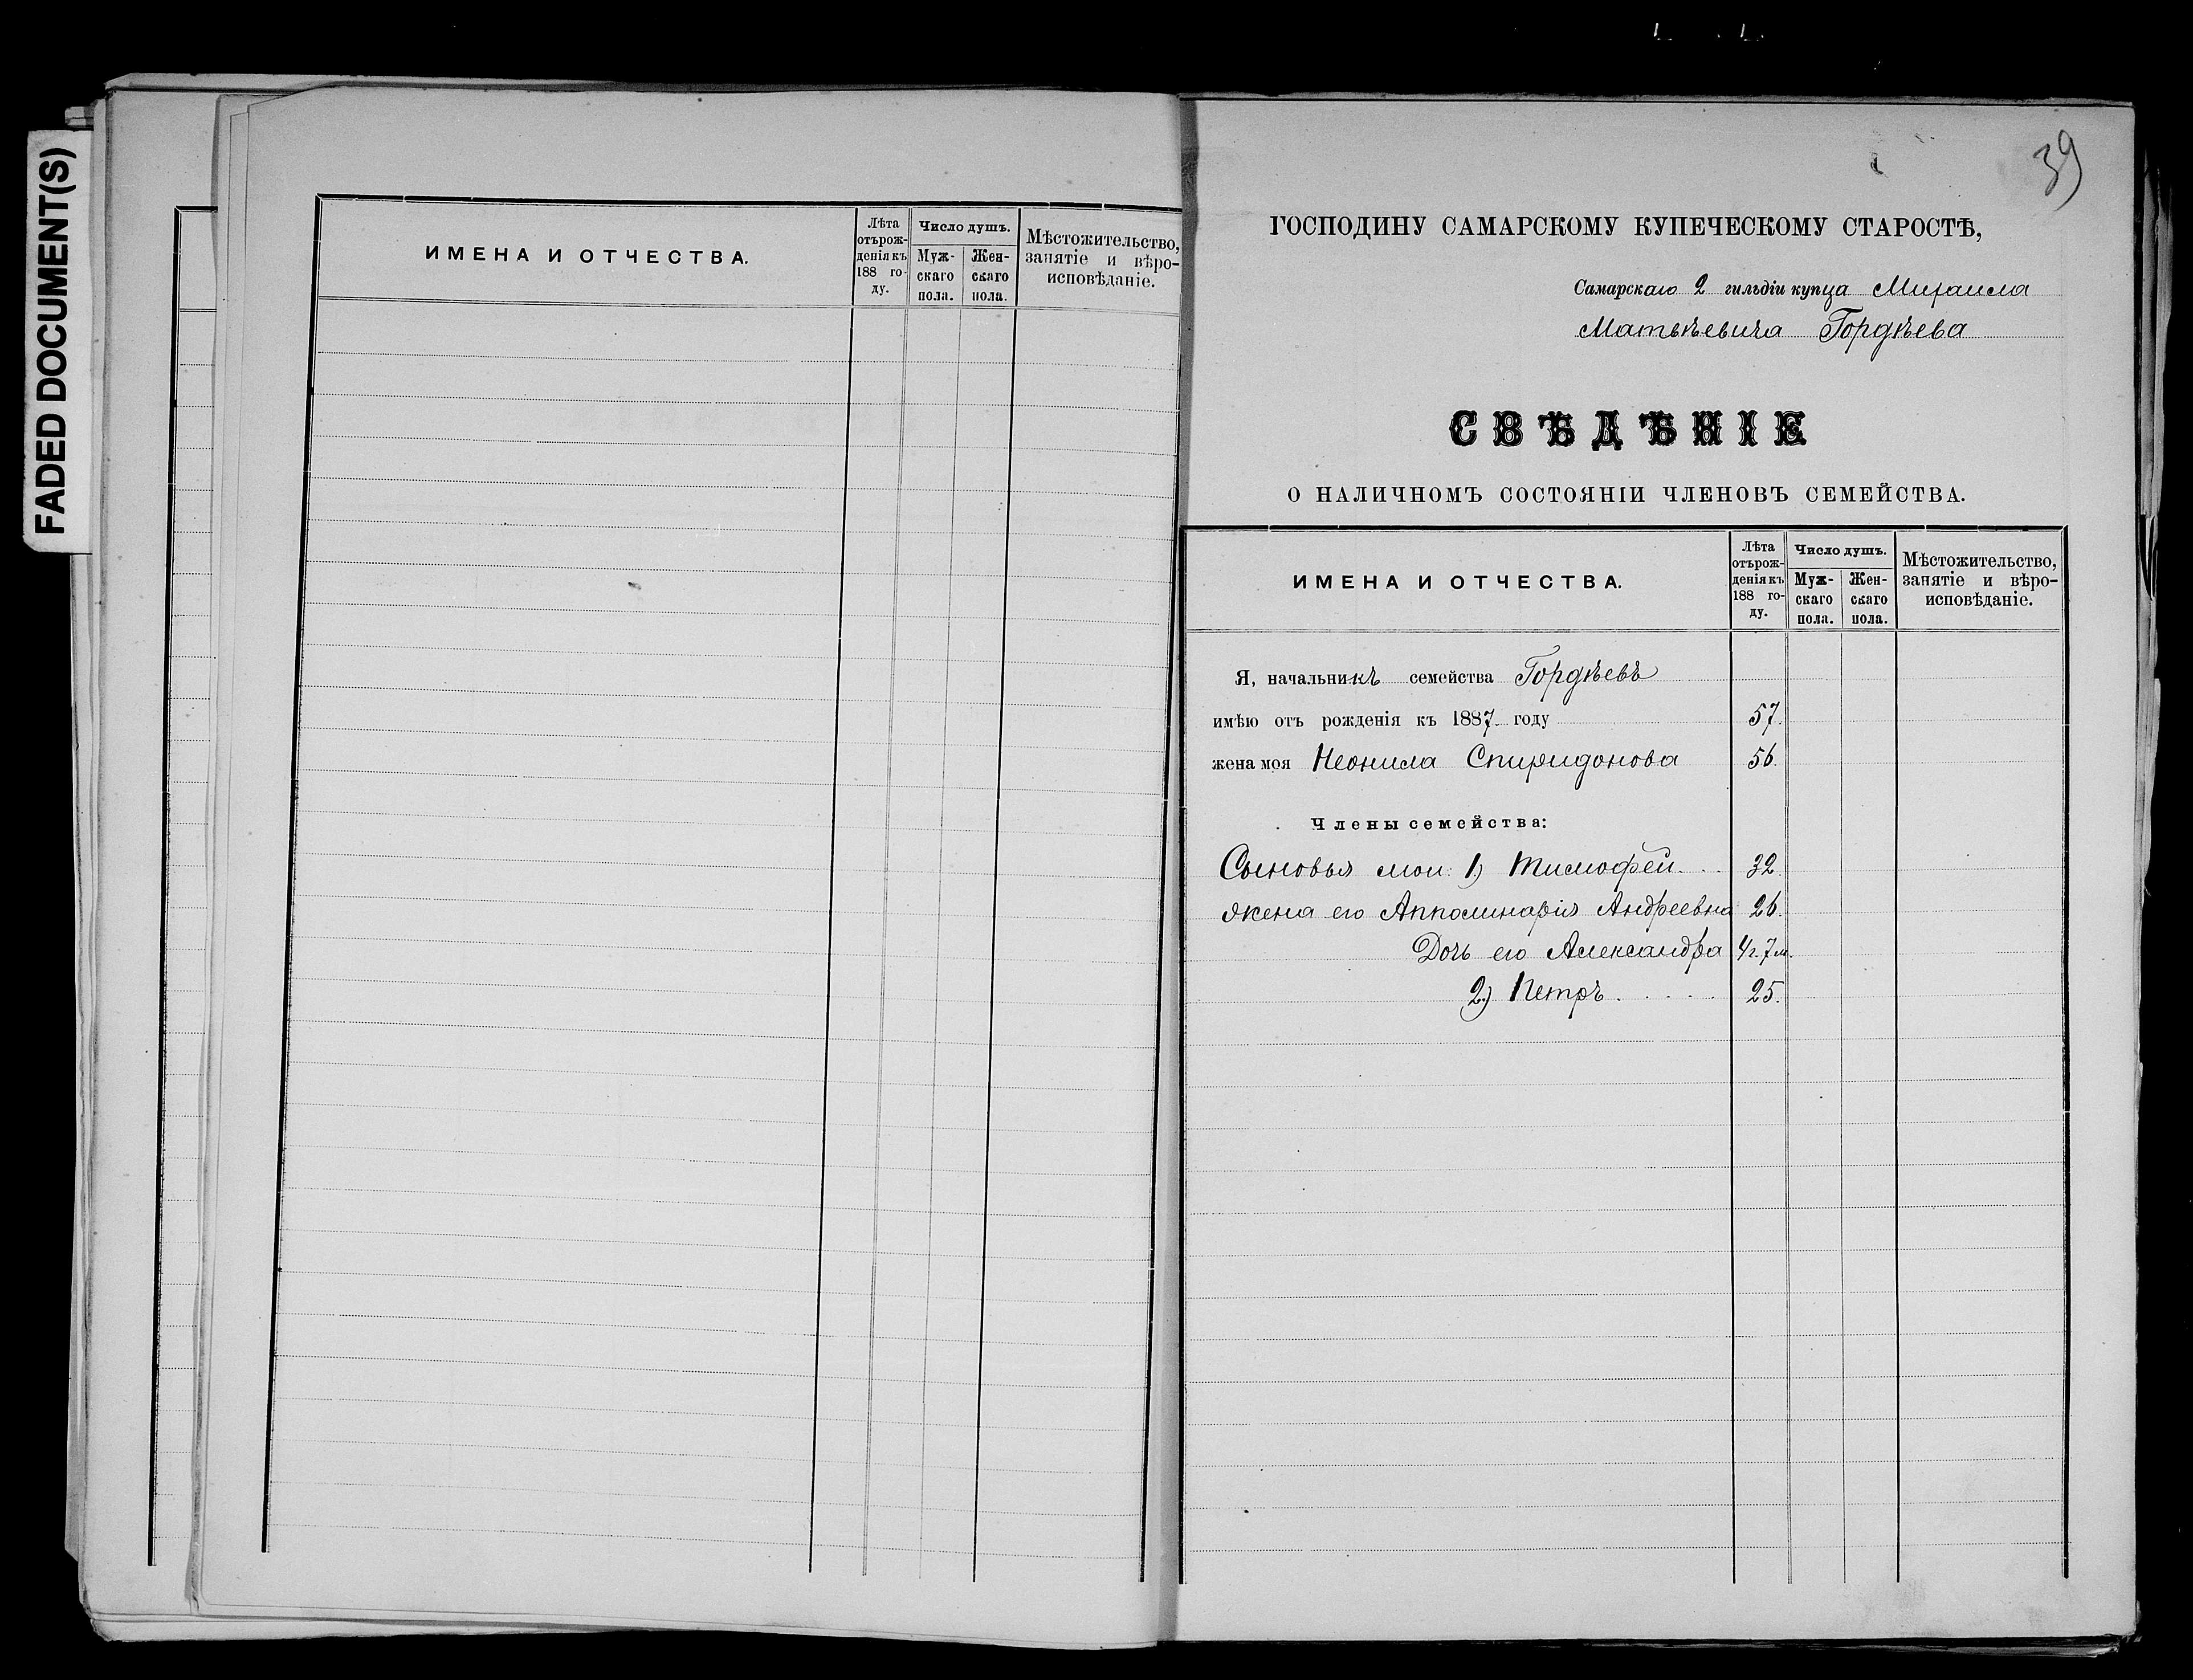 FADED DOCUMENT(S)
ИМЕНА И ОТЧЕСТВА.
Лѣта
отъ рож-
денія къ
188 го-
ду.
Число душъ.
Муж-
скаго
пола.
Жен-
скаго
пола.
Мѣстожительство,
занятіе и вѣро-
исповѣданіе.
39
ГОСПОДИНУ САМАРСКОМУ КУПЕЧЕСКОМУ СТАРОСТѢ,
Самарскаго 2 гильдіи купца Михаила
Матвѣевича Гордѣева
СВѢДѢНІЕ
О НАЛИЧНОМЪ СОСТОЯНІИ ЧЛЕНОВЪ СЕМЕЙСТВА.
ИМЕНА И ОТЧЕСТВА.
Лѣта
отъ рож-
денія къ
188 го-
ду.
Число душъ.
Муж-
скаго
пола.
Жен-
скаго
пола.
Мѣстожительство,
занятіе и вѣро-
исповѣданіе.
Я, начальникъ семейства Гордѣевъ
имѣю отъ рожденія къ 1887 году 57.
жена моя Неонила Спиридонова 56.
Члены семейства:
Сыновья мои: 1) Тимофей. . . 32.
жена его Апполинарія Андреевна 26.
Дочь его Александра 4 г. 7 м.
2.) Петръ . . . . . 25.